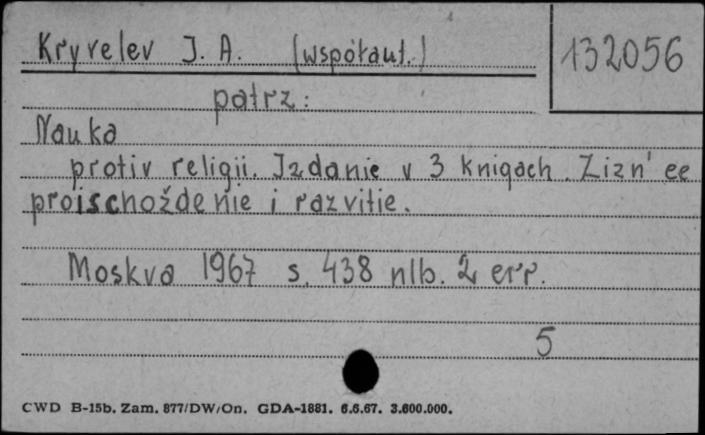 Kryvelev J. A. (współaut.)
132056
patrz:
Nauka
protiv religii. Izdanie v 3 knigach. Zizn' ee
proischoždenie i razvitie.
Moskva 1967 s. 438 nlb. 2 err.
5
CWD B-15b. Zam. 877/DW/On. GDA-1881. 6.6.67. 3.600.000.